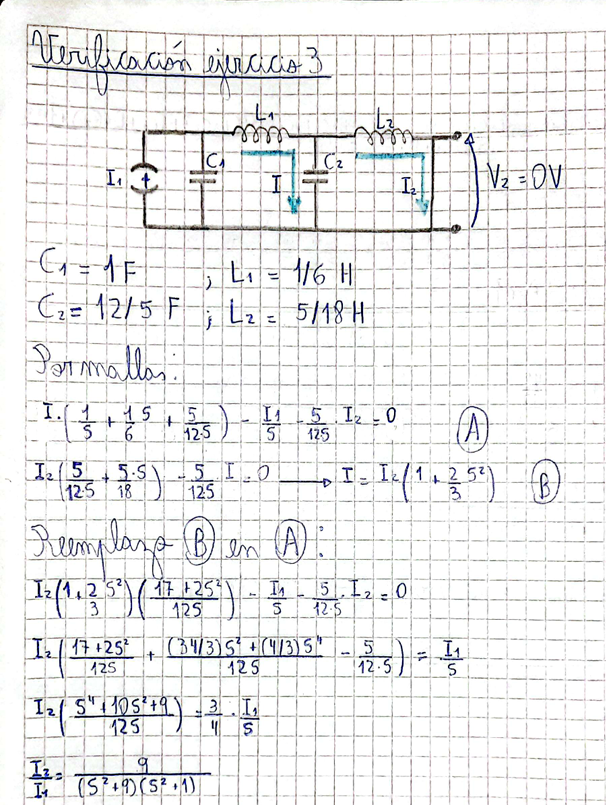 Verificación ejercicio 3
L₁ L₂
I₁ C₁ I C₂ I₂ V₂ = 0V
C₁ = 1 F ; L₁ = 1/6 H
C₂ = 12/5 F ; L₂ = 5/18 H
Por mallas:
I·(1/S + 1/6 S + 5/12S) - I₁/S - 5/12S · I₂ = 0 (A)
I₂(5/12S + 5·S/18) - 5/12S I = 0 → I = I₂(1 + 2/3 S²) (B)
Reemplazo (B) en (A):
I₂(1 + 2/3 S²)((17 + 2S²)/12S) - I₁/S - 5/12·S · I₂ = 0
I₂((17 + 2S²)/12S + ((34/3)S² + (4/3)S⁴)/12S - 5/12·S) = I₁/S
I₂((S⁴ + 10S² + 9)/12S) = 3/4 · I₁/S
I₂/I₁ = 9/((S² + 9)(S² + 1))